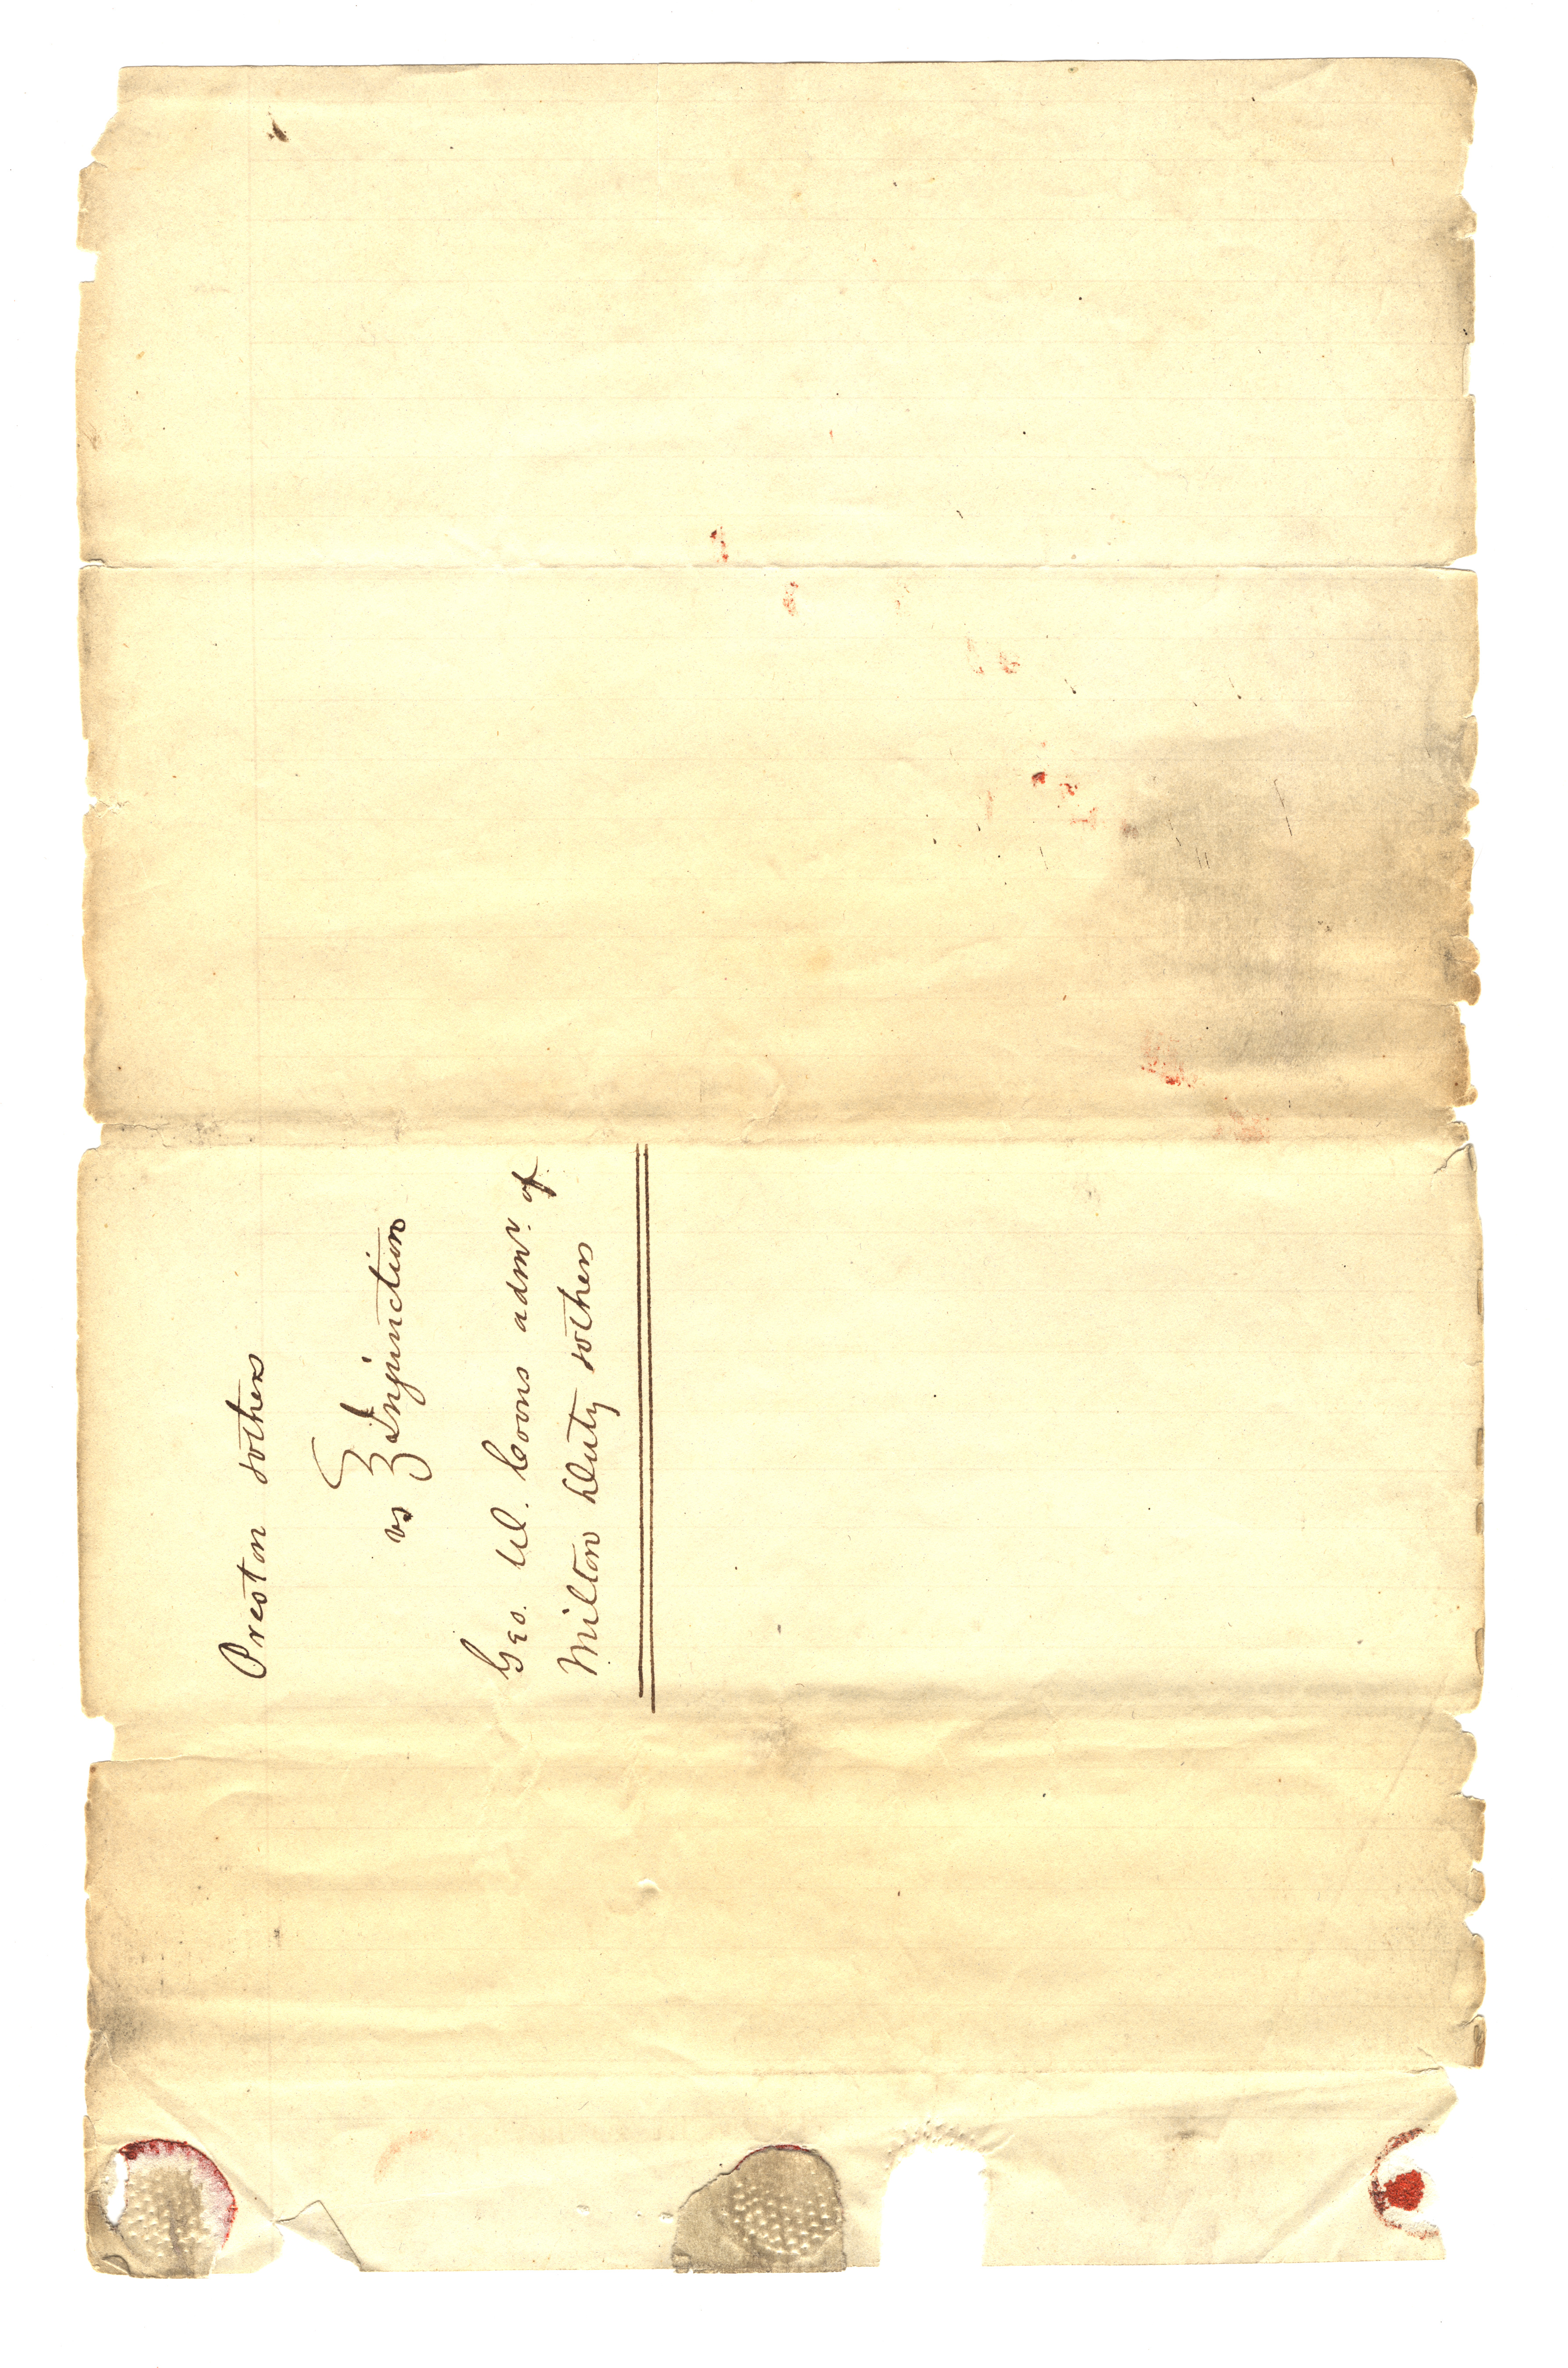 Preston &others
vs } Injunction
Geo. W. Coons admr. of
Milton Duty &others